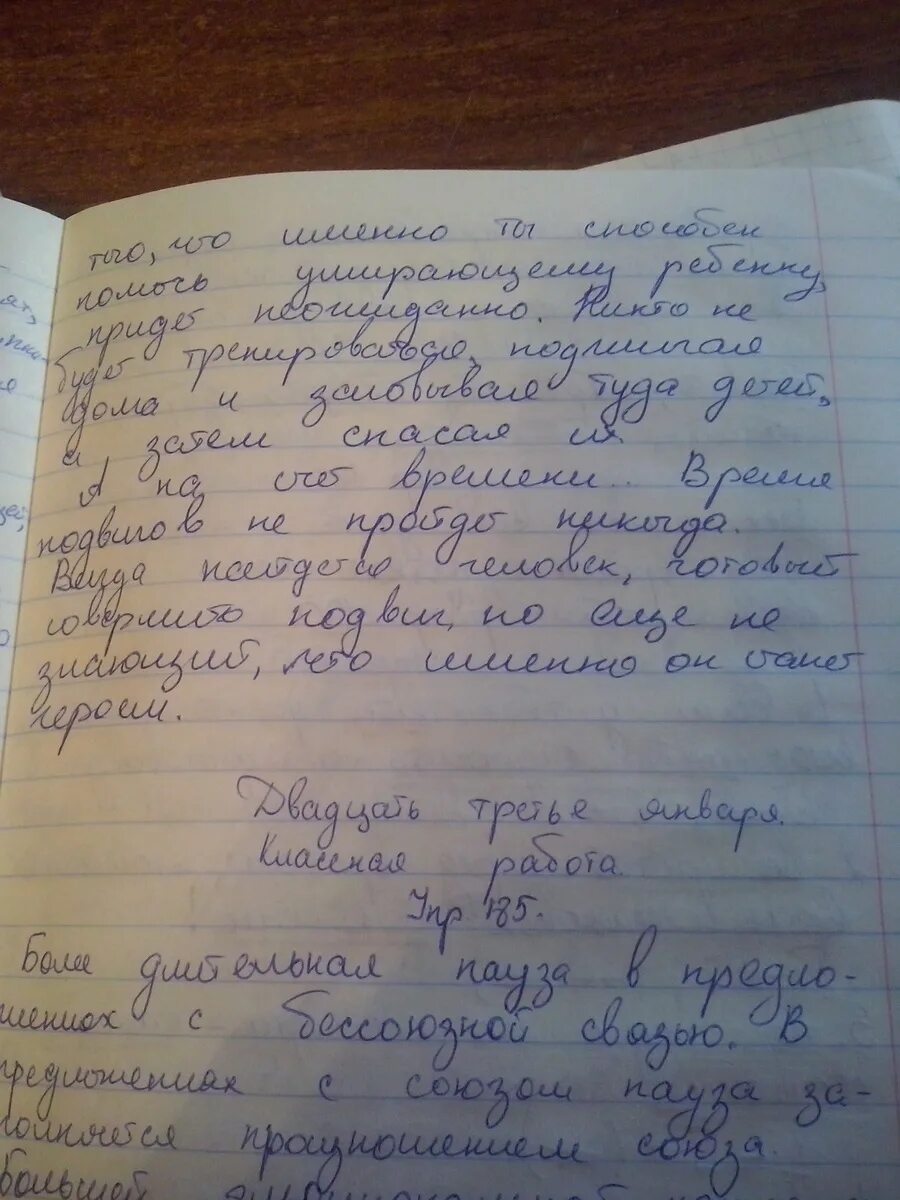 того, что именно ты способен
помочь умирающему ребенку,
придет неожиданно. Никто не
будет тренироваться, поджигая
дома и заковывая туда детей,
а затем спасая их.
А на счет времени... Время
подвигов не пройдет никогда.
Всегда найдется человек, готовый
совершить подвиг, но еще не
знающий, что именно он станет
героем.
Двадцать третье января.
Классная работа.
Упр 185.
Более длительная пауза в предло-
жениях с бессоюзной связью. В
предложениях с союзом пауза за-
полняется произношением союза.
Большей